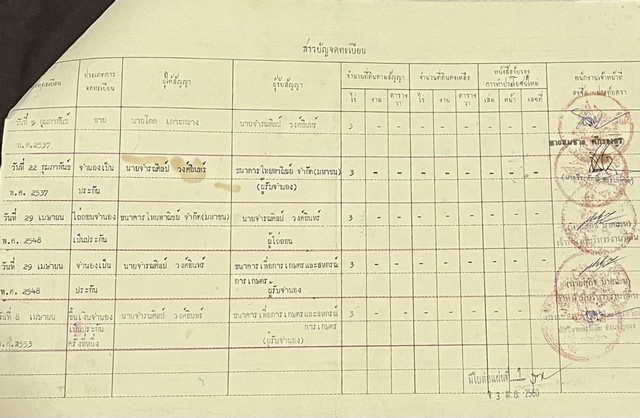 สารบัญจดทะเบียน
จดทะเบียน ประเภทการจดทะเบียน ผู้ให้สัญญา ผู้รับสัญญา จำนวนที่ดินตามสัญญา จำนวนที่ดินคงเหลือ หนังสือรับรองการทำประโยชน์ใหม่ พนักงานเจ้าหน้าที่
ไร่ งาน ตารางวา ไร่ งาน ตารางวา เล่ม หน้า เลขที่ ลงชื่อ ประทับตรา
วันที่ 9 กุมภาพันธ์ ขาย นายโคก เกาะกลาง นายจำรณศิลป์ วงค์อินทร์ 3 - - - - - - - -
พ.ศ. 2537
วันที่ 22 กุมภาพันธ์ จำนองเป็น นายจำรณศิลป์ วงค์อินทร์ ธนาคารไทยพาณิชย์ จำกัด(มหาชน) 3 - - - - - - - -
พ.ศ. 2537 ประกัน (ผู้รับจำนอง)
วันที่ 29 เมษายน ไถ่ถอนจำนอง ธนาคารไทยพาณิชย์ จำกัด(มหาชน) นายจำรณศิลป์ วงค์อินทร์ 3 - - - - - - - -
พ.ศ. 2548 เป็นประกัน ผู้ไถ่ถอน
วันที่ 29 เมษายน จำนองเป็น นายจำรณศิลป์ วงค์อินทร์ ธนาคารเพื่อการเกษตรและสหกรณ์ 3 - - - - - - - -
พ.ศ. 2548 ประกัน การเกษตร
ผู้รับจำนอง
วันที่ 8 เมษายน ขึ้นเงินจำนอง นายจำรณศิลป์ วงค์อินทร์ ธนาคารเพื่อการเกษตรและสหกรณ์ 3 - - - - - - - -
เป็นประกัน การเกษตร
พ.ศ. 2553 ครั้งที่หนึ่ง (ผู้รับจำนอง)
มีใบต่อแผ่นที่ 1